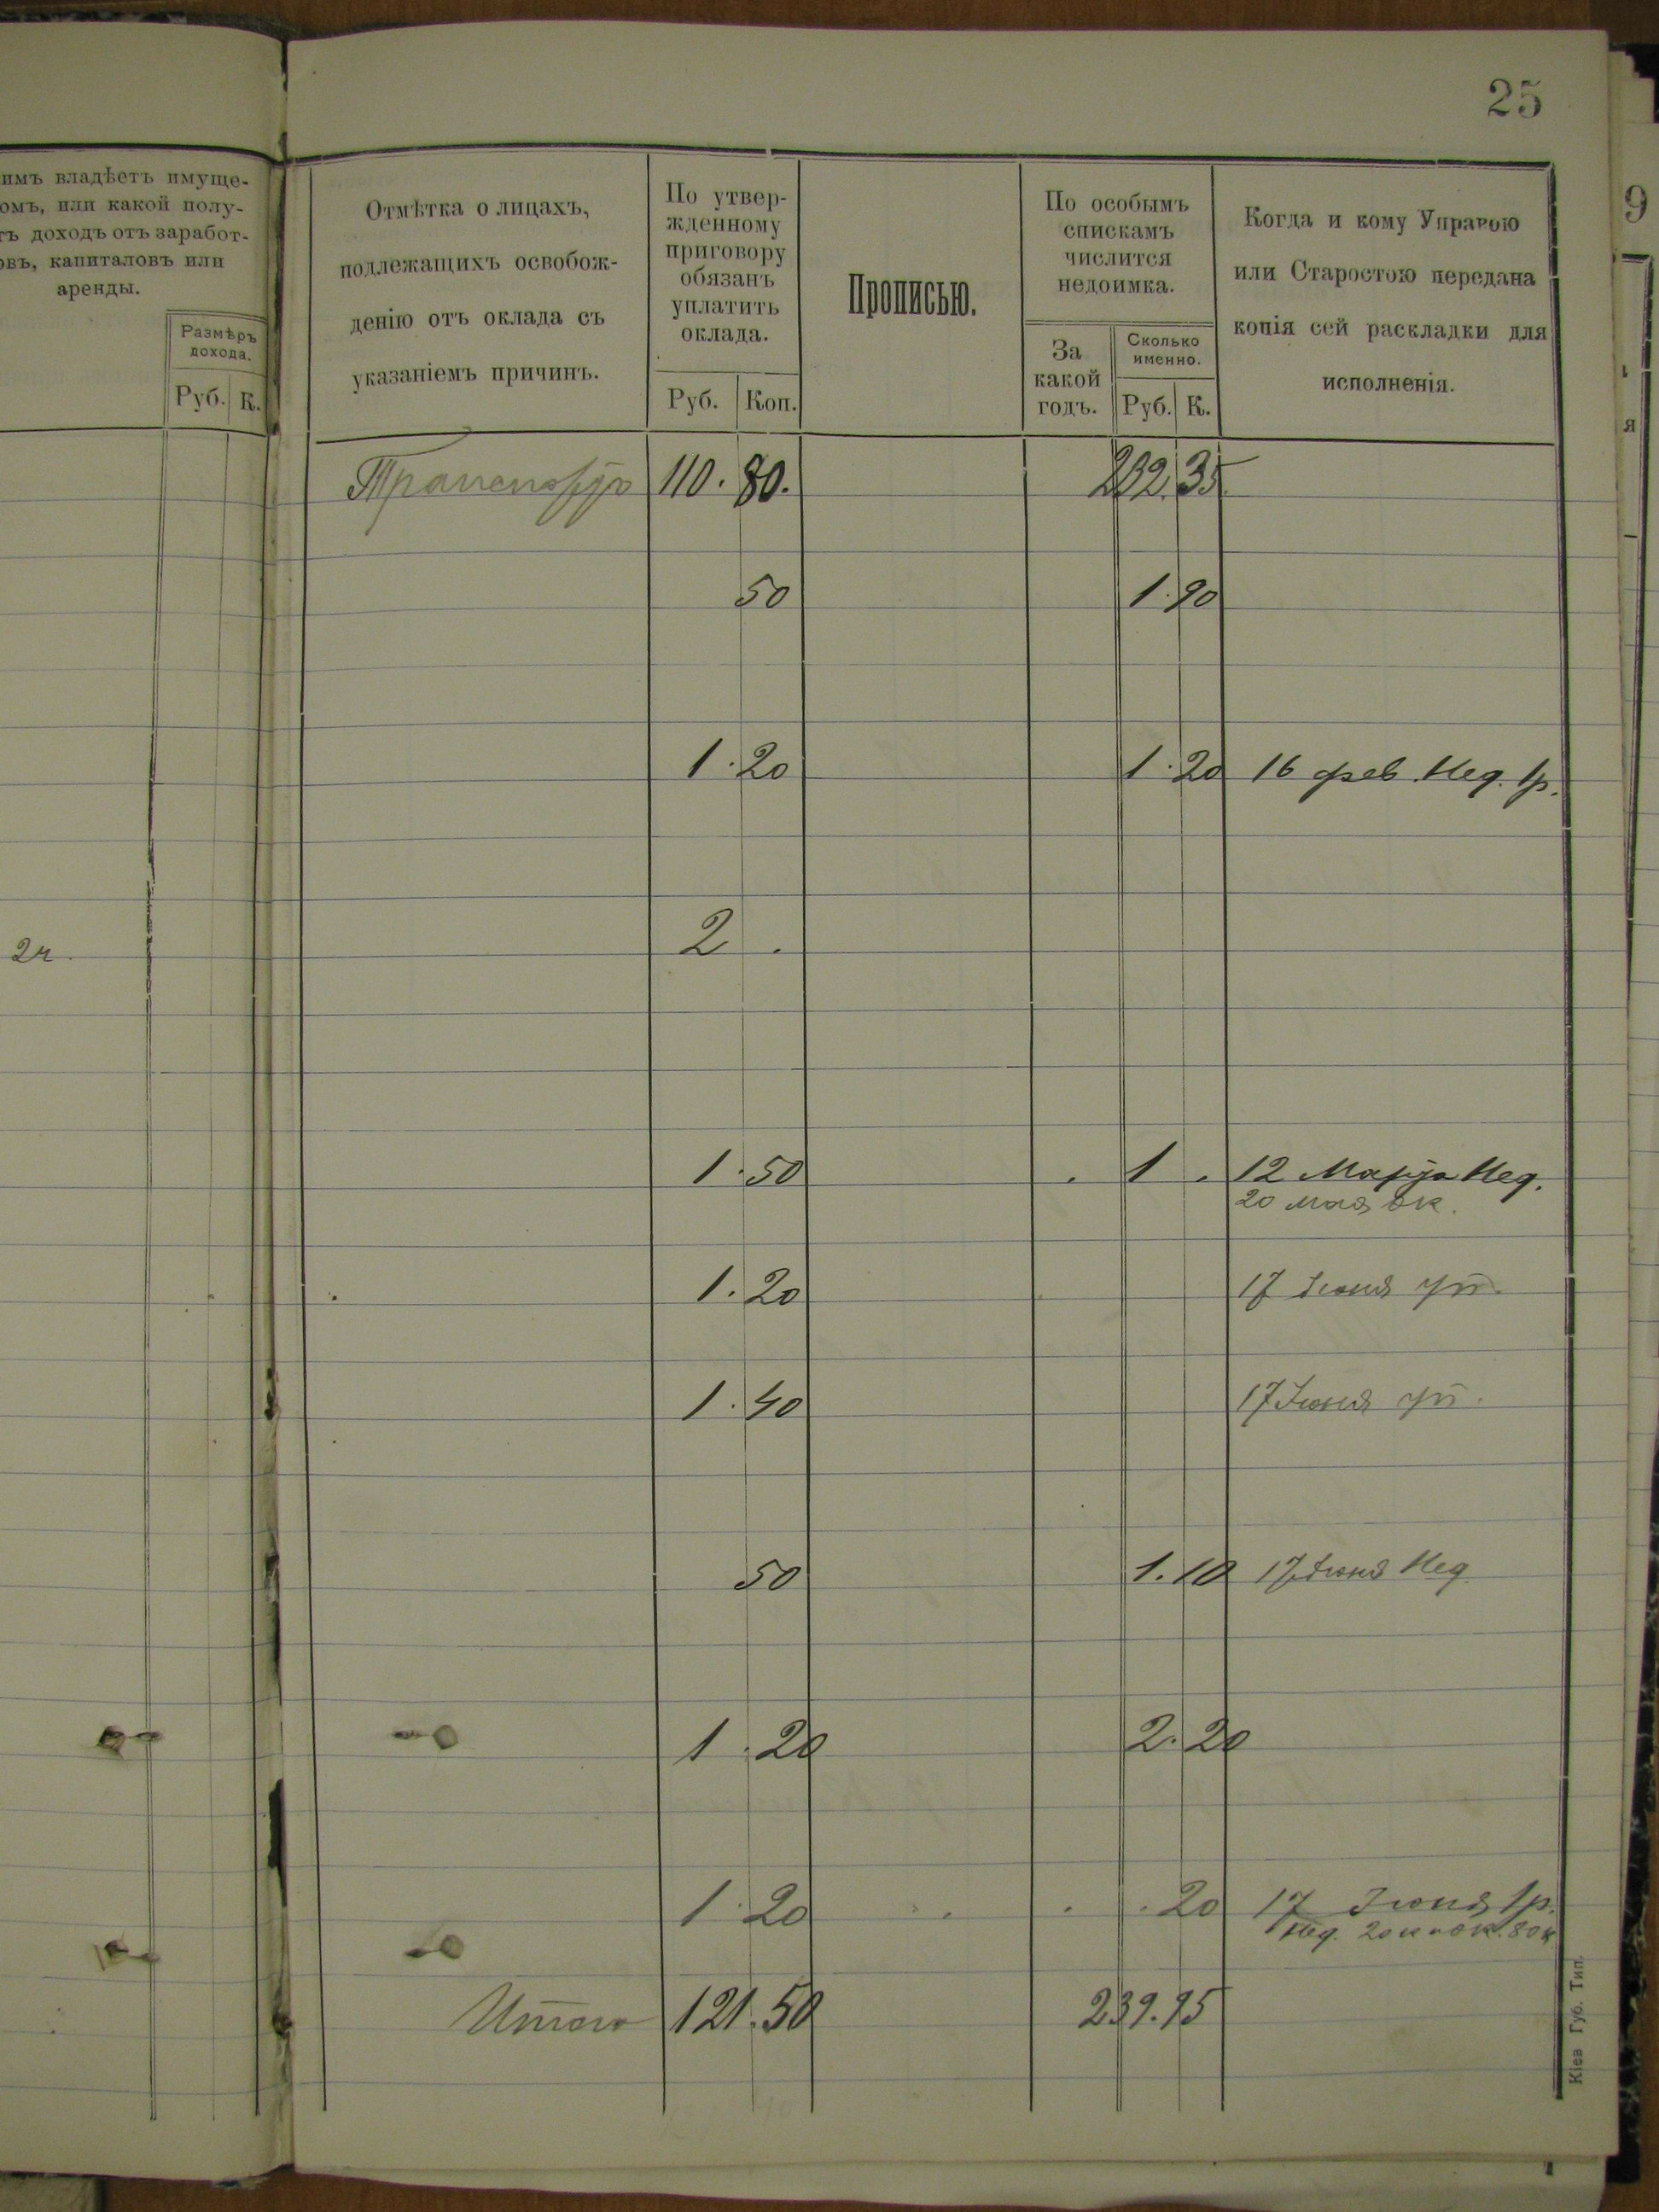 25
имъ владѣетъ имуще-
омъ, или какой полу-
тъ доходъ отъ заработ-
овъ, капиталовъ или
аренды.
Размѣръ
дохода.
Руб. К.
Отмѣтка о лицахъ,
подлежащихъ освобож-
денію отъ оклада съ
указаніемъ причинъ.
По утвер-
жденному
приговору
обязанъ
уплатить
оклада.
Руб. Коп.
Прописью.
По особымъ
спискамъ
числится
недоимка.
За
какой
годъ.
Сколько
именно.
Руб. К.
Когда и кому Управою
или Старостою передана
копія сей раскладки для
исполненія.
9
я
Транспортъ 110. 80. 232. 35
50 1. 90
1. 20 1. 20 16 фев. Нед. 1р.
2ч.
2 .
1. 50 . 1 . 12 Марта Нед.
20 мая ок.
1. 20 17 Іюня уп.
1. 40 17 Іюня уп.
50 1. 10 17 Іюня Нед
1. 20 2. 20
1. 20 . 20 17 Іюня 1р.
Нед. 20к ок. 80к
Итого 121. 50 239. 95
Кіев Губ. Тип.